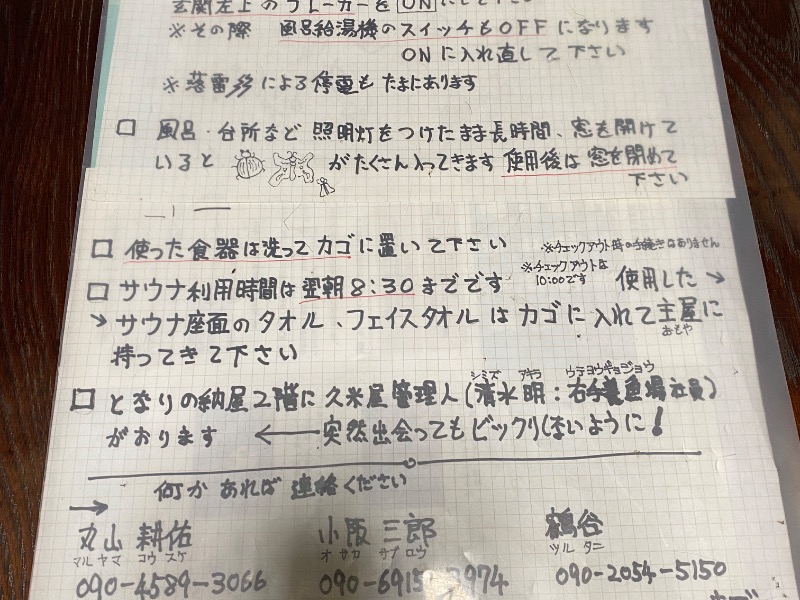 玄関左上のブレーカーを ON にして下さい
※その際 風呂給湯機のスイッチもOFFになります
ONに入れ直して下さい
※落雷etcによる停電もたまにあります
□ 風呂・台所など照明灯をつけたまま長時間、窓を開けて
いると がたくさん入ってきます 使用後は窓を閉めて
下さい
□ 使った食器は洗ってカゴに置いて下さい
※チェックアウト時の手続きはありません
※チェックアウトは
10:00です
□ サウナ利用時間は翌朝8:30までです
使用した→
→サウナ座面のタオル、フェイスタオルはカゴに入れて主屋に
おもや
持ってきて下さい
シミズ アキラ ウテヨウギョジョウ
□ となりの納屋2階に久米屋管理人(清水 明:右手養魚場社員)
がおります ← 突然出会ってもビックリしないように!
何かあれば連絡ください
→
丸山 耕佑 小阪 三郎 鶴谷
マルヤマ コウスケ オサカ サブロウ ツルタニ
090-4589-3066 090-6915- 974 090-2054-5150